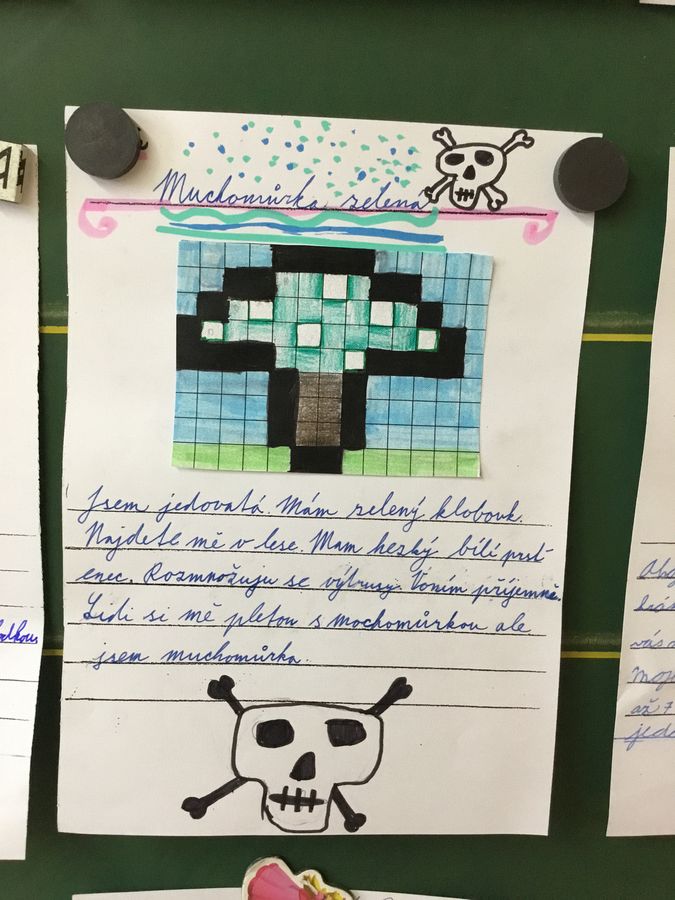 Muchomůrka zelená
Jsem jedovatá. Mám zelený klobouk.
Najdete mě v lese. Mam hezký bílí prst-
enec. Rozmnožuju se výtrusy. Voním příjemně.
Lidi si mě pletou s mochomůrkou ale
jsem muchomůrka.
vás
až 7